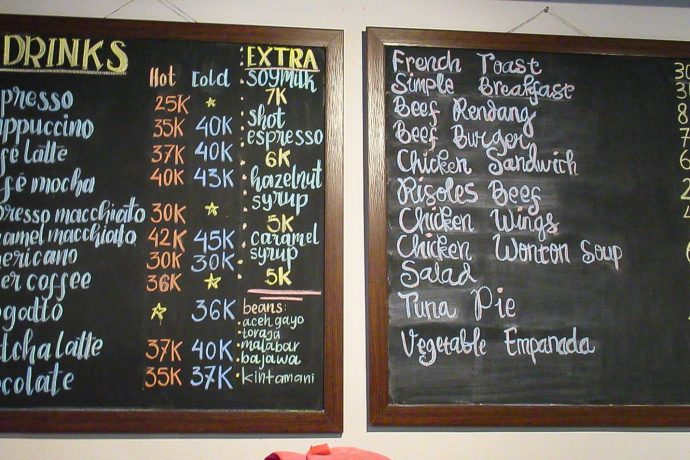 DRINKS
Hot Cold
presso 25K ★
appuccino 35K 40K
fe latte 37K 40K
fé mocha 40K 43K
presso macchiato 30K ★
ramel macchiato 42K 45K
ericano 30K 30K
er coffee 36K ★
ogatto ★ 36K
tcha latte 37K 40K
ocolate 35K 37K
EXTRA
SOYMILK
7K
shot
espresso
6K
hazelnut
syrup
5K
caramel
syrup
5K
beans:
• aceh gayo
• toraja
• malabar
• bajawa
• kintamani
French Toast
Simple Breakfast
Beef Rendang
Beef Burger
Chicken Sandwich
Risoles Beef
Chicken Wings
Chicken Wonton Soup
Salad
Tuna Pie
Vegetable Empanada